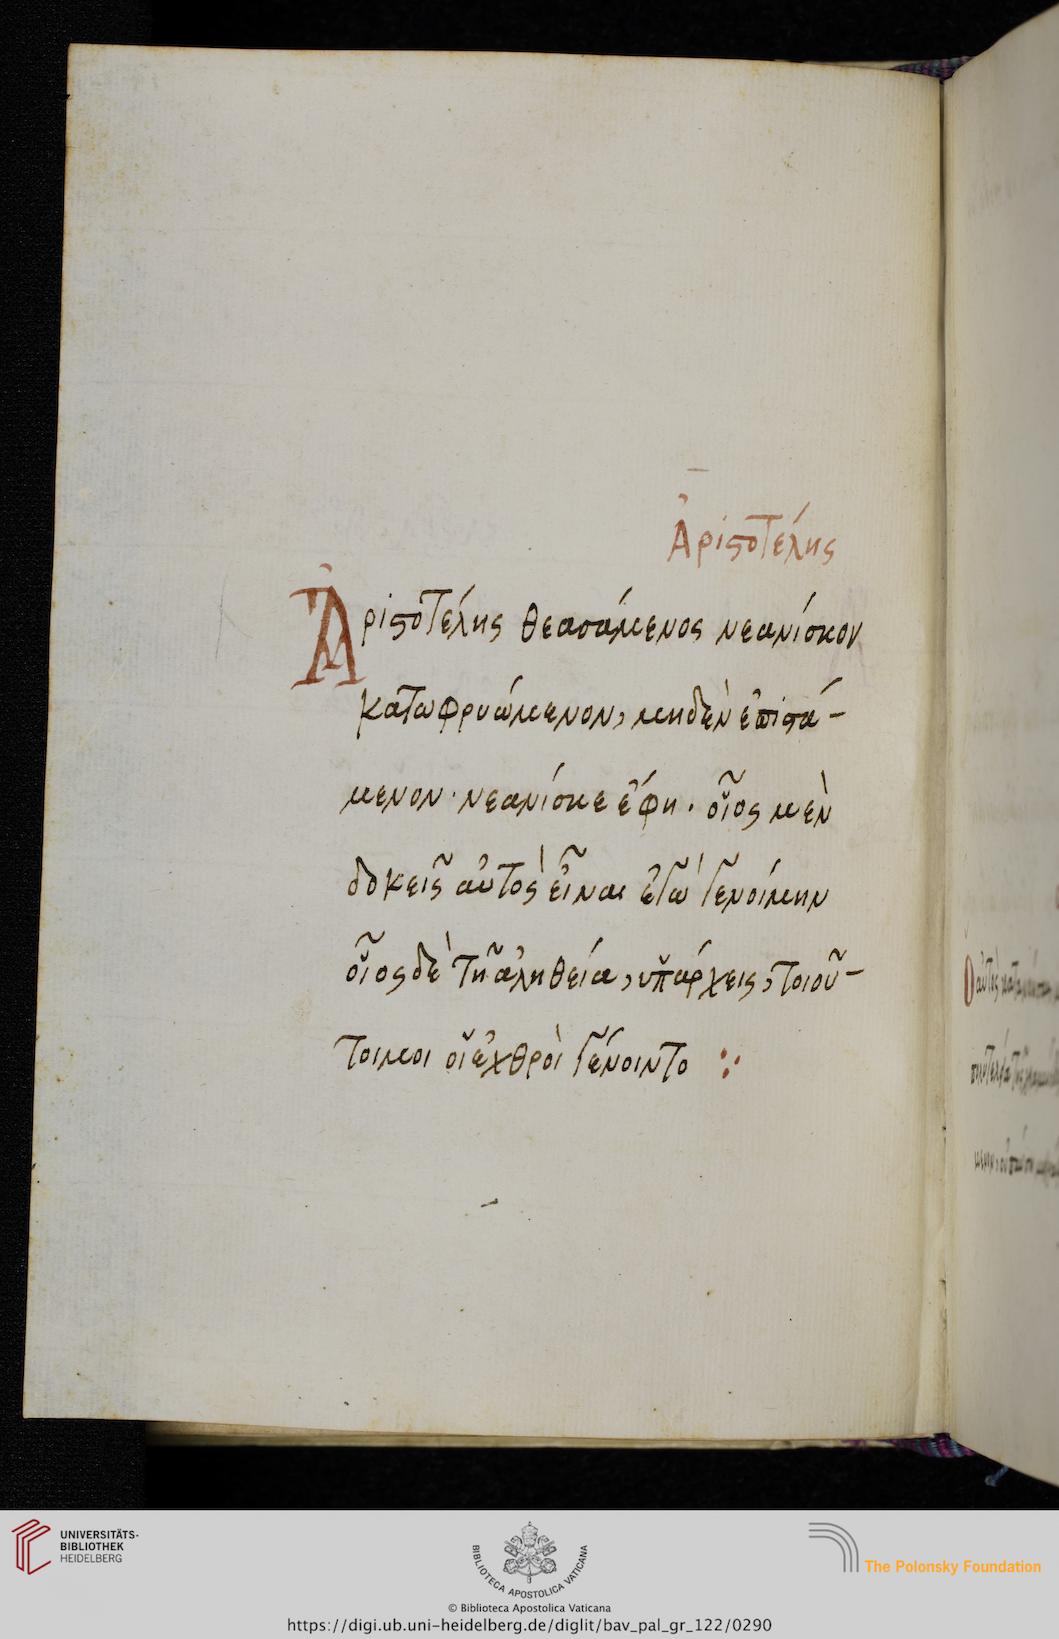 Ἀριστοτέλης
Ἀριστοτέλης θεασάμενος νεανίσκον
κατωφρυώμενον, μηδὲν ἐπιστά-
μενον· νεανίσκε ἔφη. οἷος μὲν
δοκεῖς αὐτὸς εἶναι ἐγὼ γενοίμην
οἷος δὲ τῆ ἀληθεία, ὑπάρχεις, τοιοῦ-
τοι μοι οἱ ἐχθροὶ γένοιντο :·
UNIVERSITÄTS-
BIBLIOTHEK
HEIDELBERG
BIBLIOTECA APOSTOLICA VATICANA
The Polonsky Foundation
© Biblioteca Apostolica Vaticana
https://digi.ub.uni-heidelberg.de/diglit/bav_pal_gr_122/0290